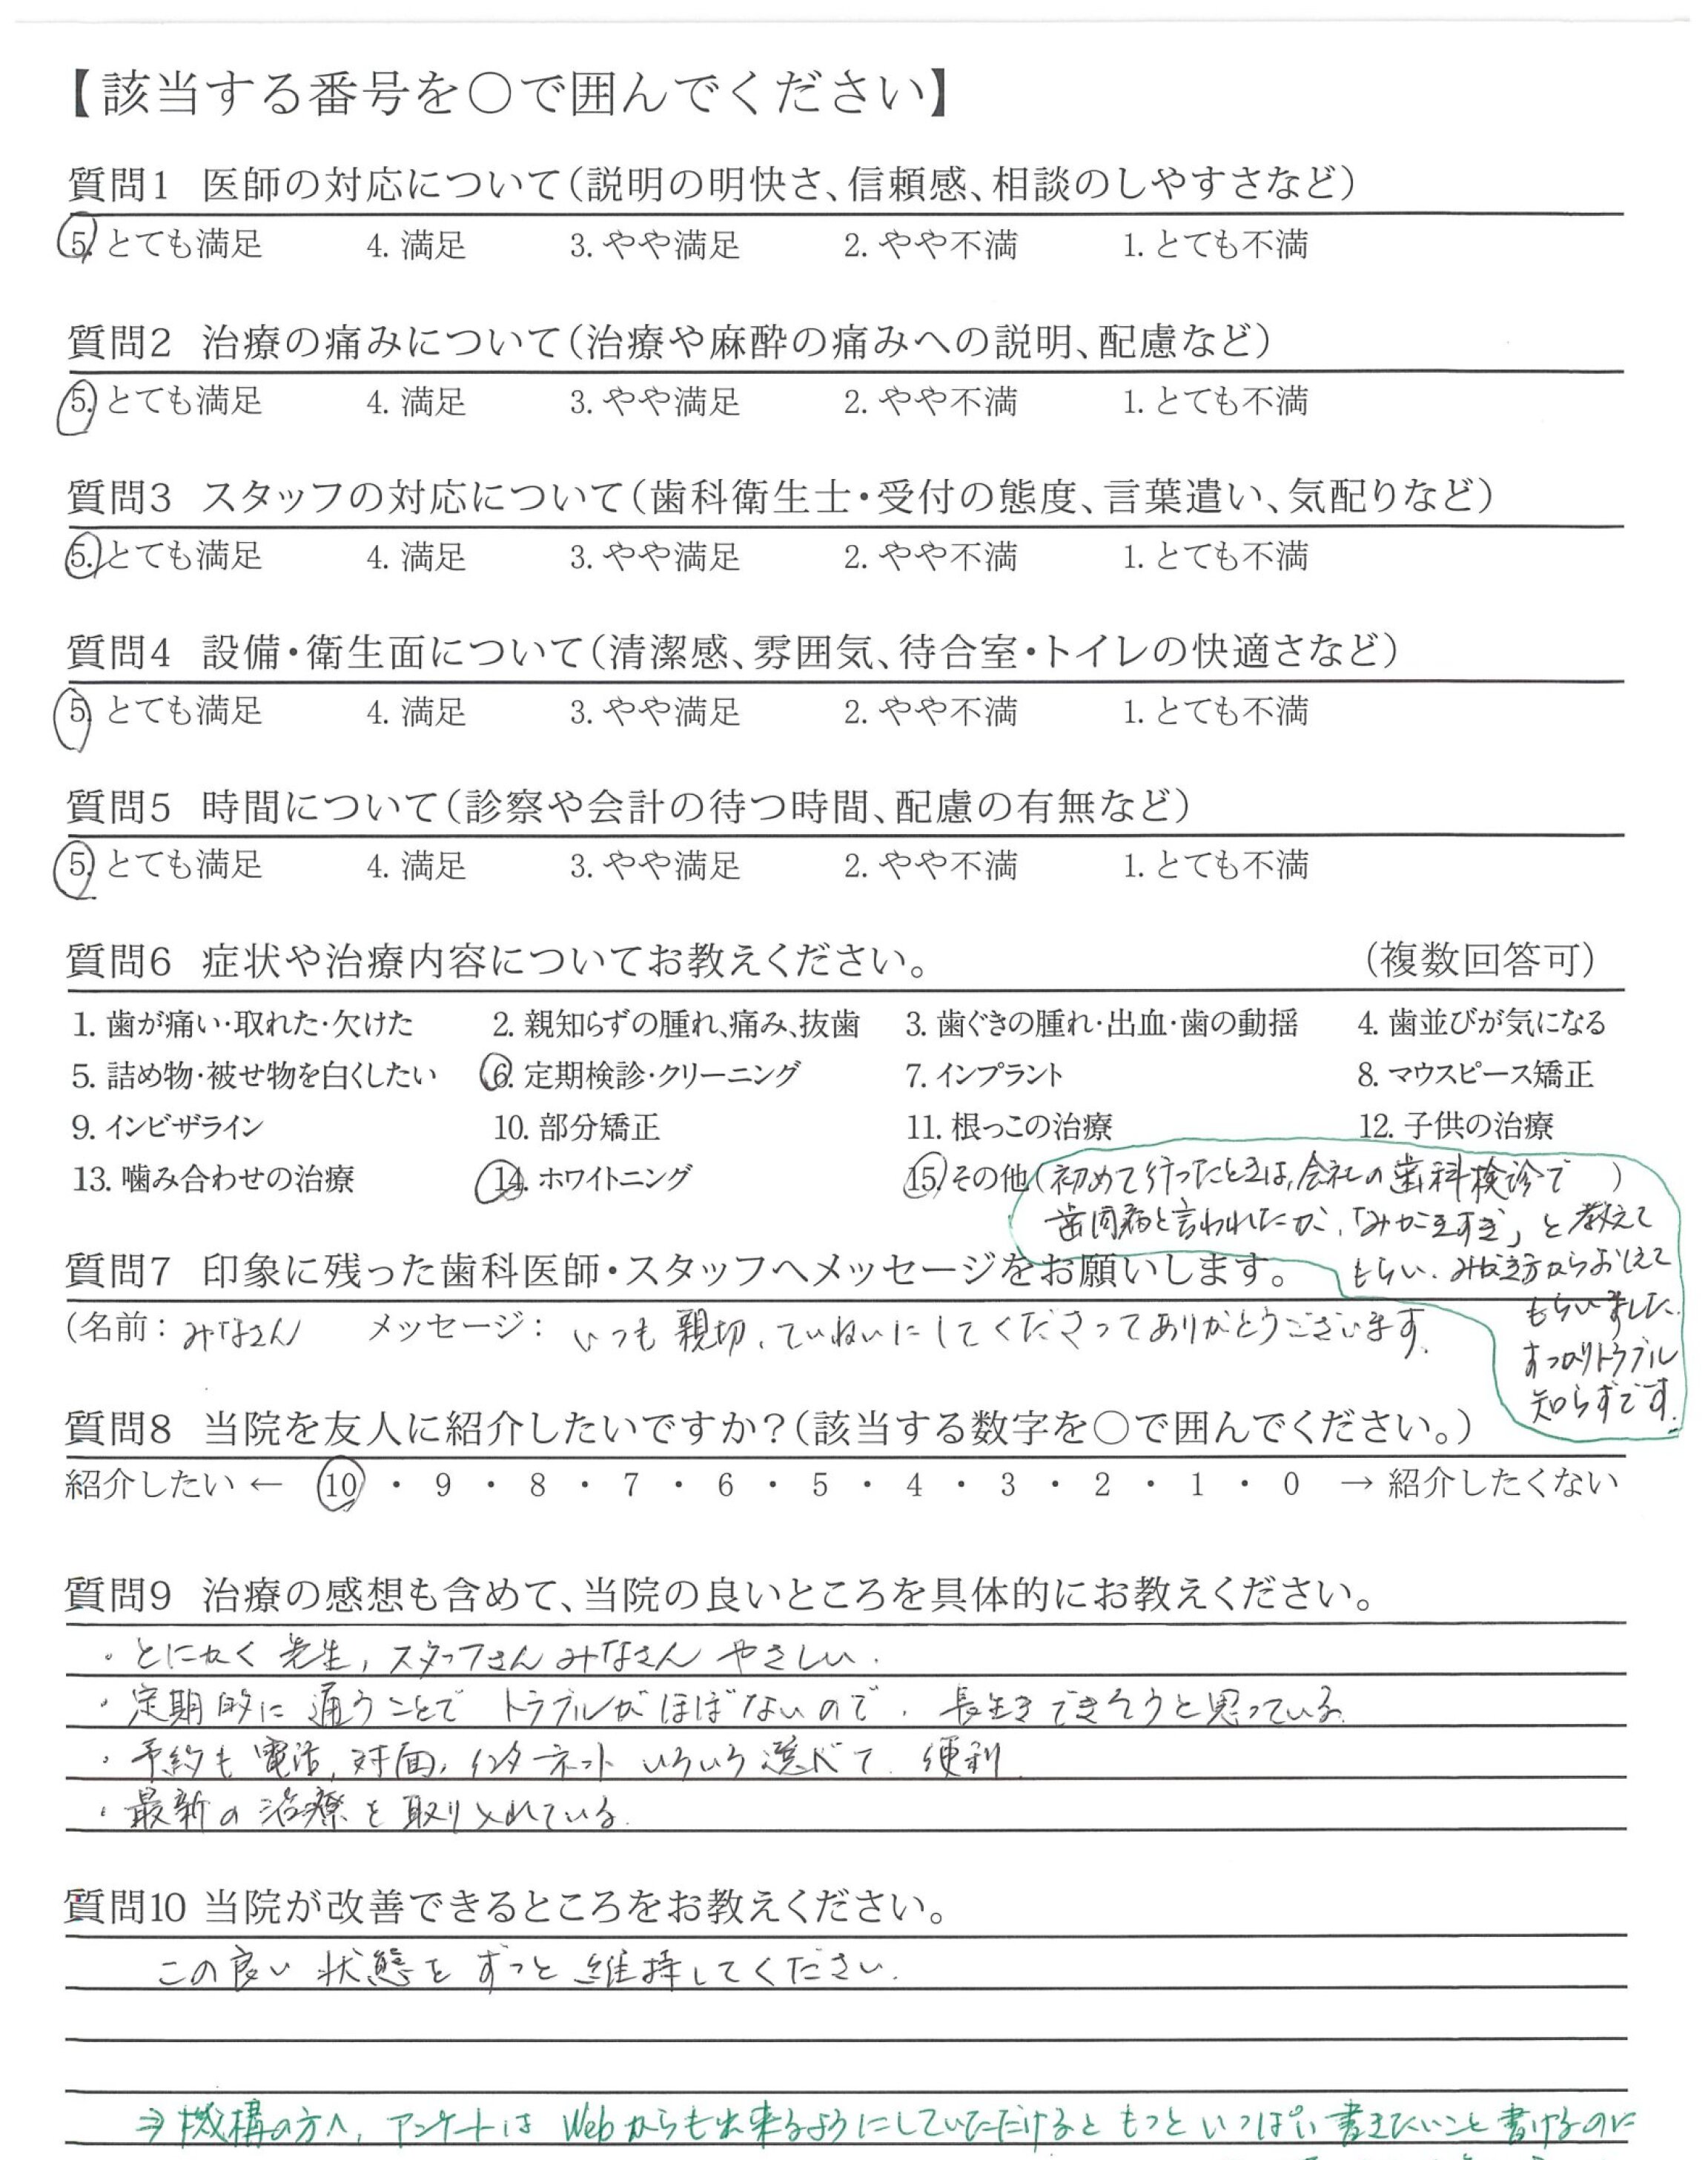 【該当する番号を○で囲んでください】
質問1 医師の対応について(説明の明快さ、信頼感、相談のしやすさなど)
5. とても満足 4. 満足 3. やや満足 2. やや不満 1. とても不満
質問2 治療の痛みについて(治療や麻酔の痛みへの説明、配慮など)
5. とても満足 4. 満足 3. やや満足 2. やや不満 1. とても不満
質問3 スタッフの対応について(歯科衛生士・受付の態度、言葉遣い、気配りなど)
5. とても満足 4. 満足 3. やや満足 2. やや不満 1. とても不満
質問4 設備・衛生面について(清潔感、雰囲気、待合室・トイレの快適さなど)
5. とても満足 4. 満足 3. やや満足 2. やや不満 1. とても不満
質問5 時間について(診察や会計の待つ時間、配慮の有無など)
5. とても満足 4. 満足 3. やや満足 2. やや不満 1. とても不満
質問6 症状や治療内容についてお教えください。 (複数回答可)
1. 歯が痛い・取れた・欠けた 2. 親知らずの腫れ、痛み、抜歯 3. 歯ぐきの腫れ・出血・歯の動揺 4. 歯並びが気になる
5. 詰め物・被せ物を白くしたい 6. 定期検診・クリーニング 7. インプラント 8. マウスピース矯正
9. インビザライン 10. 部分矯正 11. 根っこの治療 12. 子供の治療
13. 噛み合わせの治療 14. ホワイトニング 15. その他(初めて行ったときは、会社の歯科検診で)
歯周病と言われたが、「みがきすぎ」と教えて
もらい、みがき方からおしえて
もらいました。
すっかりトラブル
知らずです。
質問7 印象に残った歯科医師・スタッフへメッセージをお願いします。
(名前: みなさん メッセージ: いつも親切、ていねいにしてくださってありがとうございます。
質問8 当院を友人に紹介したいですか?(該当する数字を○で囲んでください。)
紹介したい ← 10 ・ 9 ・ 8 ・ 7 ・ 6 ・ 5 ・ 4 ・ 3 ・ 2 ・ 1 ・ 0 → 紹介したくない
質問9 治療の感想も含めて、当院の良いところを具体的にお教えください。
・とにかく先生,スタッフさんみなさんやさしい.
・定期的に通うことでトラブルがほぼないので、長生きできそうと思っている.
・予約も電話,対面,インターネットいろいろ選べて便利.
・最新の治療を取り入れている.
質問10 当院が改善できるところをお教えください。
この良い状態をずっと維持してください.
⇒ 機構の方へ,アンケートはWebからも出来るようにしていただけるともっといっぱい書きたいこと書けるのに